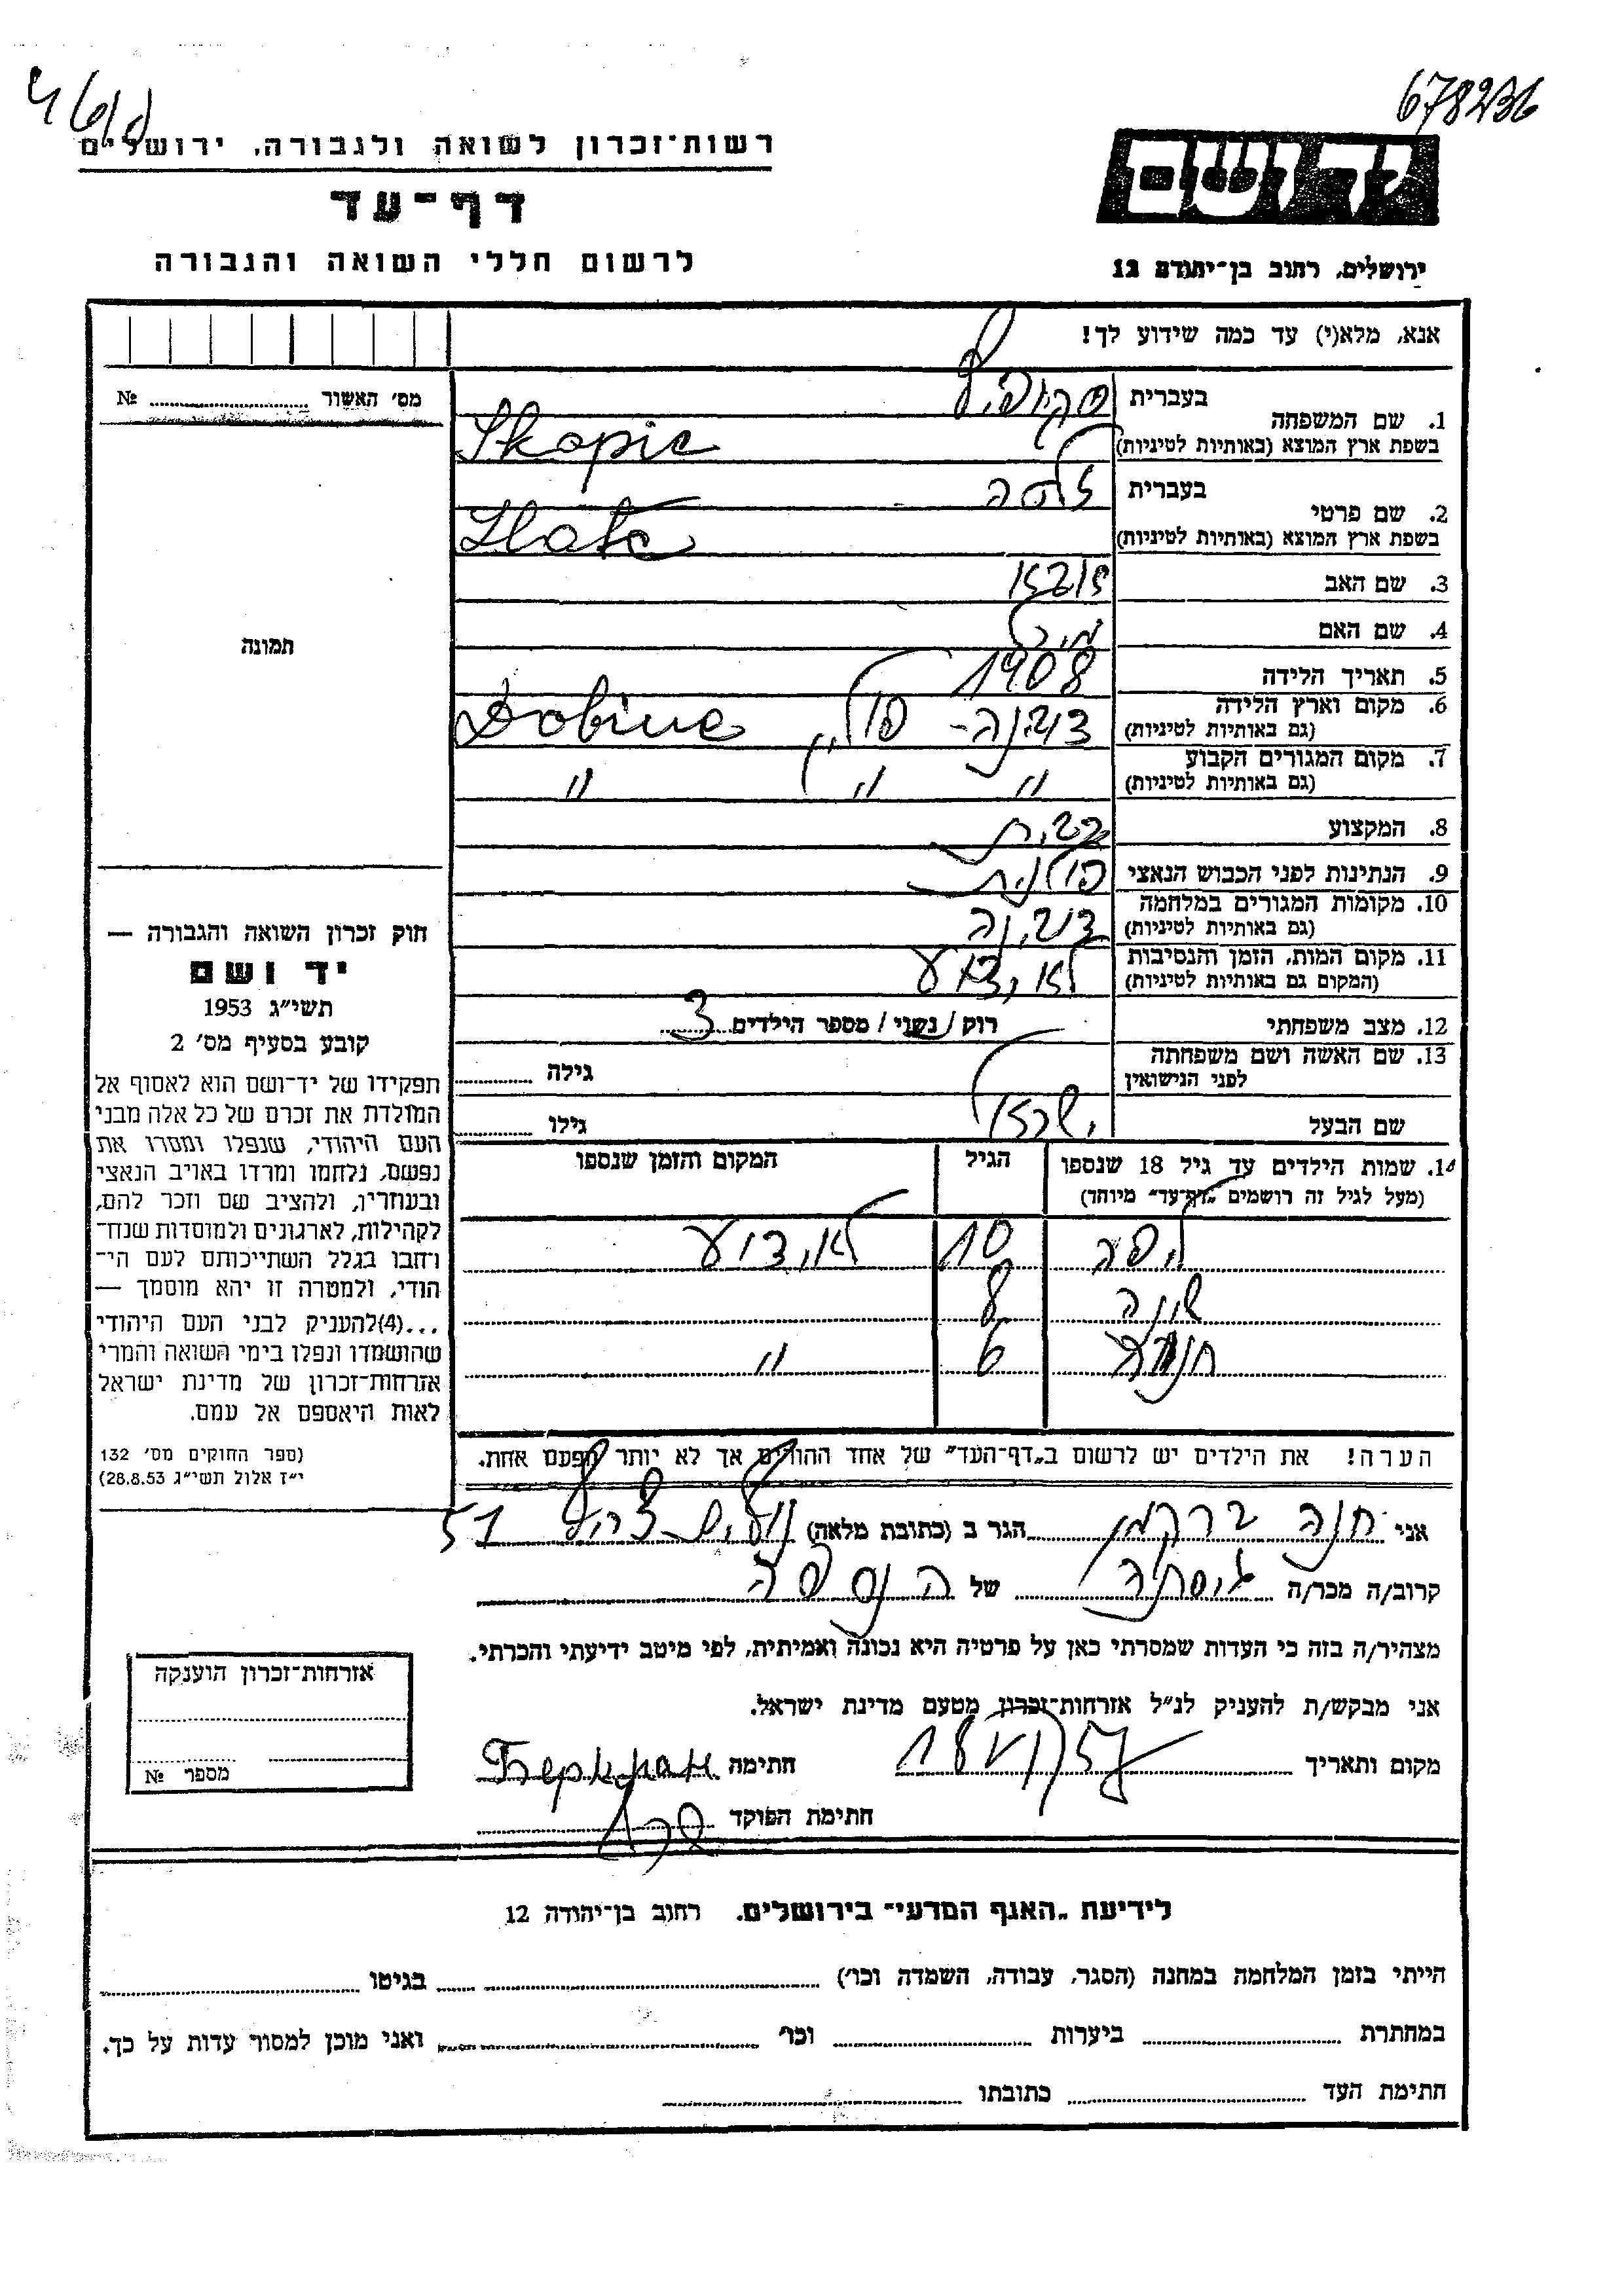 678236
רשות־זכרון לשואה ולגבורה, ירושלים
דף־עד
לרשום חללי השואה והגבורה
יד ושם
ירושלים, רחוב בן־יהודה 12
אנא, מלא(י) עד כמה שידוע לך!
מס׳ האשור № 
בעברית
1. שם המשפחה
בשפת ארץ המוצא (באותיות לטיניות) Skopic
בעברית זלטה
2. שם פרטי
בשפת ארץ המוצא (באותיות לטיניות) Zlata
3. שם האב
4. שם האם
5. תאריך הלידה 1908
6. מקום וארץ הלידה
(גם באותיות לטיניות) דובינה - פולין Dobina
7. מקום המגורים הקבוע
(גם באותיות לטיניות) " " "
8. המקצוע
9. הנתינות לפני הכבוש הנאצי פולנית
10. מקומות המגורים במלחמה
(גם באותיות לטיניות) דובינה
11. מקום המות, הזמן והנסיבות
(המקום גם באותיות לטיניות) לא ידוע
12. מצב משפחתי רוק / נשוי / מספר הילדים 3
13. שם האשה ושם משפחתה
לפני הנישואין גילה
שם הבעל ישראל גילו
14. שמות הילדים עד גיל 18 שנספו הגיל המקום והזמן שנספו
(מעל לגיל זה רושמים „דף־עד" מיוחד)
10 לא ידוע
8
6 "
הערה! את הילדים יש לרשום ב„דף־העד" של אחד ההורים אך לא יותר מפעם אחת.
תמונה
חוק זכרון השואה והגבורה —
יד ושם
תשי״ג 1953
קובע בסעיף מס׳ 2
תפקידו של יד־ושם הוא לאסוף אל
המולדת את זכרם של כל אלה מבני
העם היהודי, שנפלו ומסרו את
נפשם, נלחמו ומרדו באויב הנאצי
ובעוזריו, ולהציב שם וזכר להם,
לקהילות, לארגונים ולמוסדות שנח־
רבו בגלל השתייכותם לעם הי־
הודי, ולמטרה זו יהא מוסמך —
...(4)להעניק לבני העם היהודי
שהושמדו ונפלו בימי השואה והמרי
אזרחות־זכרון של מדינת ישראל
לאות היאספם אל עמם.
(ספר החוקים מס׳ 132
י״ז אלול תשי״ג 28.8.53)
אני חנה ברקמן הגר ב (כתובת מלאה) 51
קרוב/ה מכר/ה גיסתה של הנספה
מצהיר/ה בזה כי העדות שמסרתי כאן על פרטיה היא נכונה ואמיתית, לפי מיטב ידיעתי והכרתי.
אני מבקש/ת להעניק לנ״ל אזרחות־זכרון מטעם מדינת ישראל.
מקום ותאריך חתימה Беркман
חתימת הפוקד
אזרחות־זכרון הוענקה
מספר №
לידיעת „האגף המדעי" בירושלים. רחוב בן־יהודה 12
הייתי בזמן המלחמה במחנה (הסגר, עבודה, השמדה וכו׳) בגיטו
במחתרת ביערות וכו׳ ואני מוכן למסור עדות על כך.
חתימת העד כתובתו